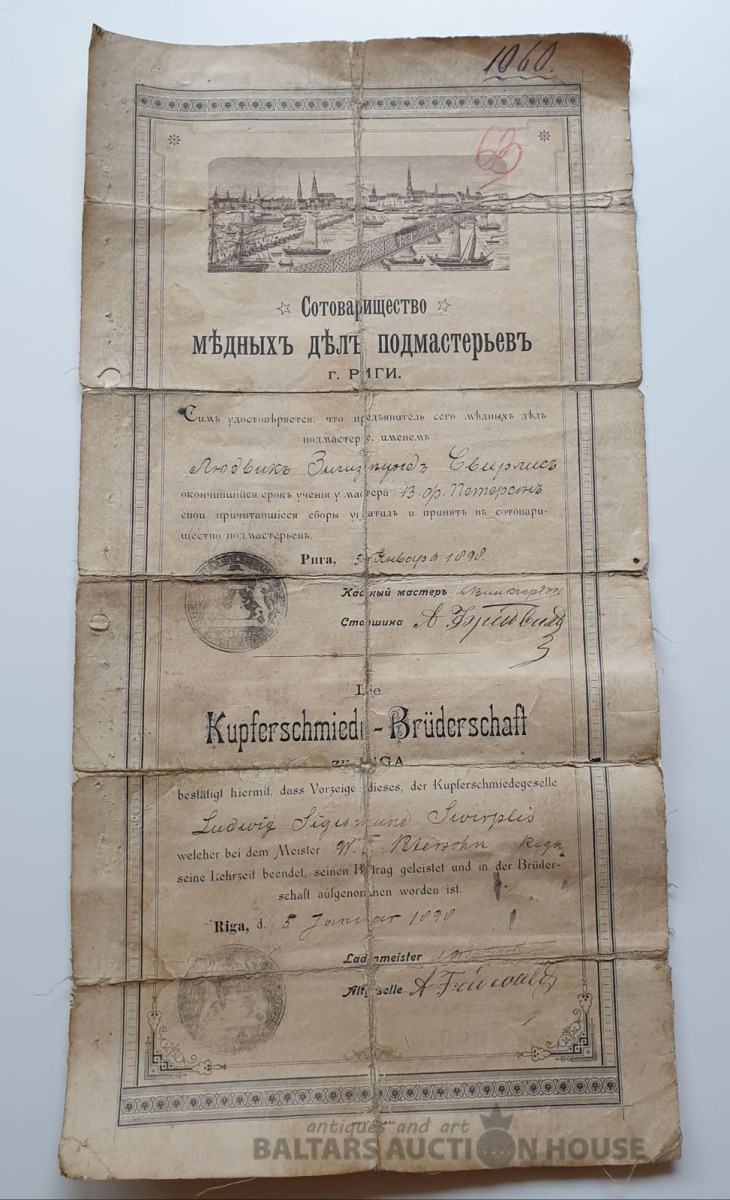 1060.
63
Сотоварищество
мѣдныхъ дѣлъ подмастерьевъ
г. РИГИ.
Симъ удостовѣряется, что предъявитель сего мѣдныхъ дѣлъ
подмастерье, именемъ
Людвикъ Зигизмундъ
окончившійся срокъ ученія у мастера В. Ф. Петерсонъ
свои причитавшіеся сборы уплатилъ и принятъ въ сотовари-
щество подмастерьевъ.
Рига, 5 Января 1898.
Кассный мастеръ
Старшина А.
Die
Kupferschmiede-Brüderschaft
zu RIGA
bestätigt hiermit, dass Vorzeiger dieses, der Kupferschmiedegeselle
Ludwig Sigismund
welcher bei dem Meister W. F. Petersohn Riga
seine Lehrzeit beendet, seinen Beitrag geleistet und in der Brüder-
schaft aufgenommen worden ist.
Riga, d. 5 Januar 1898
Ladenmeister
Altgeselle A.
antiques and art
BALTARS AUCTION HOUSE